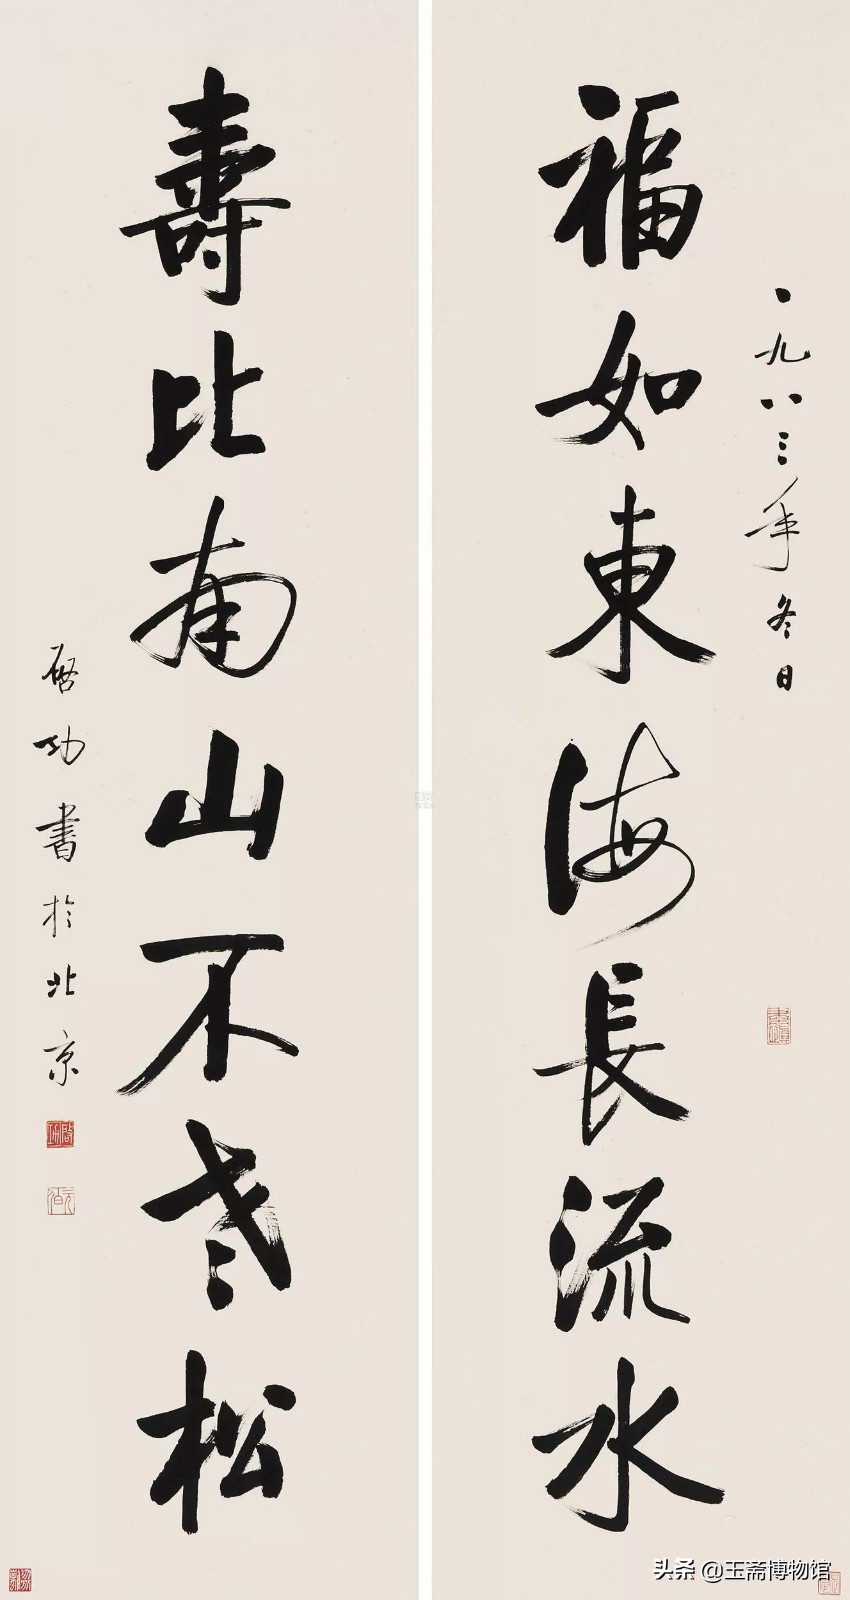 一九八三年冬日
福如東海長流水
壽比南山不老松
啓功書於北京
头条 @玉斋博物馆